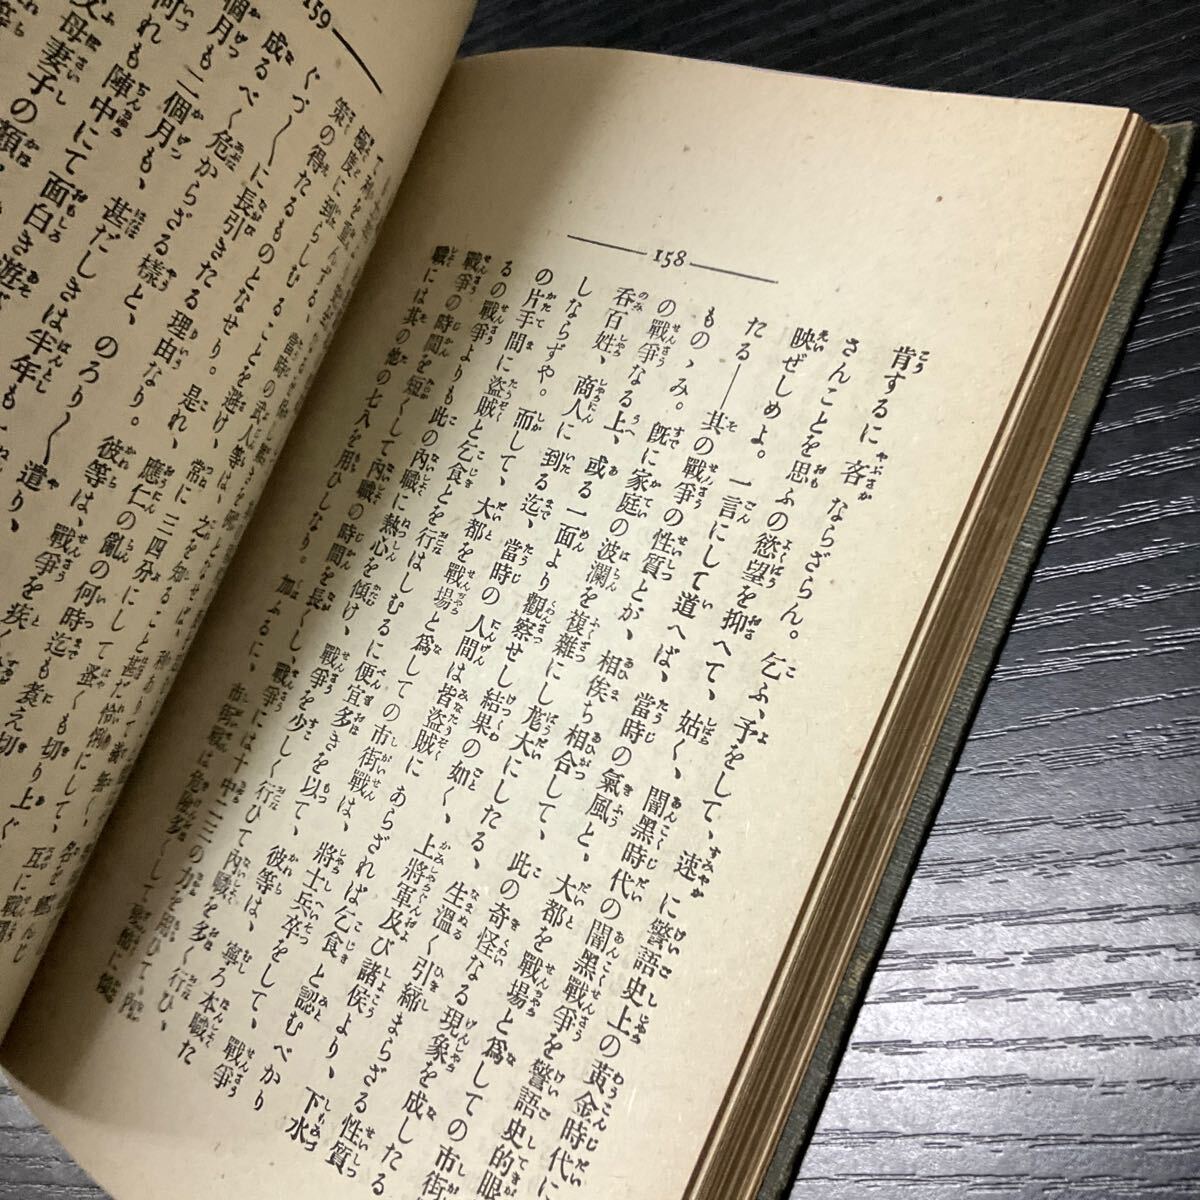 158
肯するに吝ならざらん。乞ふ、予をして、速に警語史上の黄金時代に
さんことを思ふの慾望を抑へて、姑く、闇黑時代の闇黑戰爭を警語史的眼
映ぜしめよ。一言にして道へば、當時の氣風と、大都を戰場と爲しての市街
たる——其の戰爭の性質とが、相俟ち相合して、此の奇怪なる現象を成したる
もの、み。既に家庭の波瀾を複雜にし尨大にしたる、生溫く引締まらざる性質
の戰爭なる上、或る一面より觀察せし結果の如く、上將軍及び諸侯より、下水
呑百姓、商人に到る迄、當時の人間は皆盜賊にあらざれば乞食と認むべかり
しならずや。而して、大都を戰場と爲しての市街戰は、將士兵卒をして、戰爭
の片手間に盜賊と乞食とを行はしむるに便宜多きを以て、彼等は、寧ろ本職た
るの戰爭よりも此の內職に熱心を傾け、戰爭を少しく行ひて內職を多く行ひ、
戰爭の時間を短くして內職の時間を長くし、戰爭には十中二三の力を用ひて、內
職には其の他の七八を用ひしなり。加ふるに、市街戰は危險多くして
159
極度に到らしむることを避け、常に三四分にして蚤くも切り上ぐ
策の得たるものとなせり。是れ、應仁の亂の何時迄も煑え切
ぐづ〱に長引きたる理由なり。彼等は、戰爭を疾く
成るべく危からざる樣と、のろり〱遣り、
個月も二個月も、甚だしきは半年も
何れも陣中にて面白き遊
父母妻子の顏